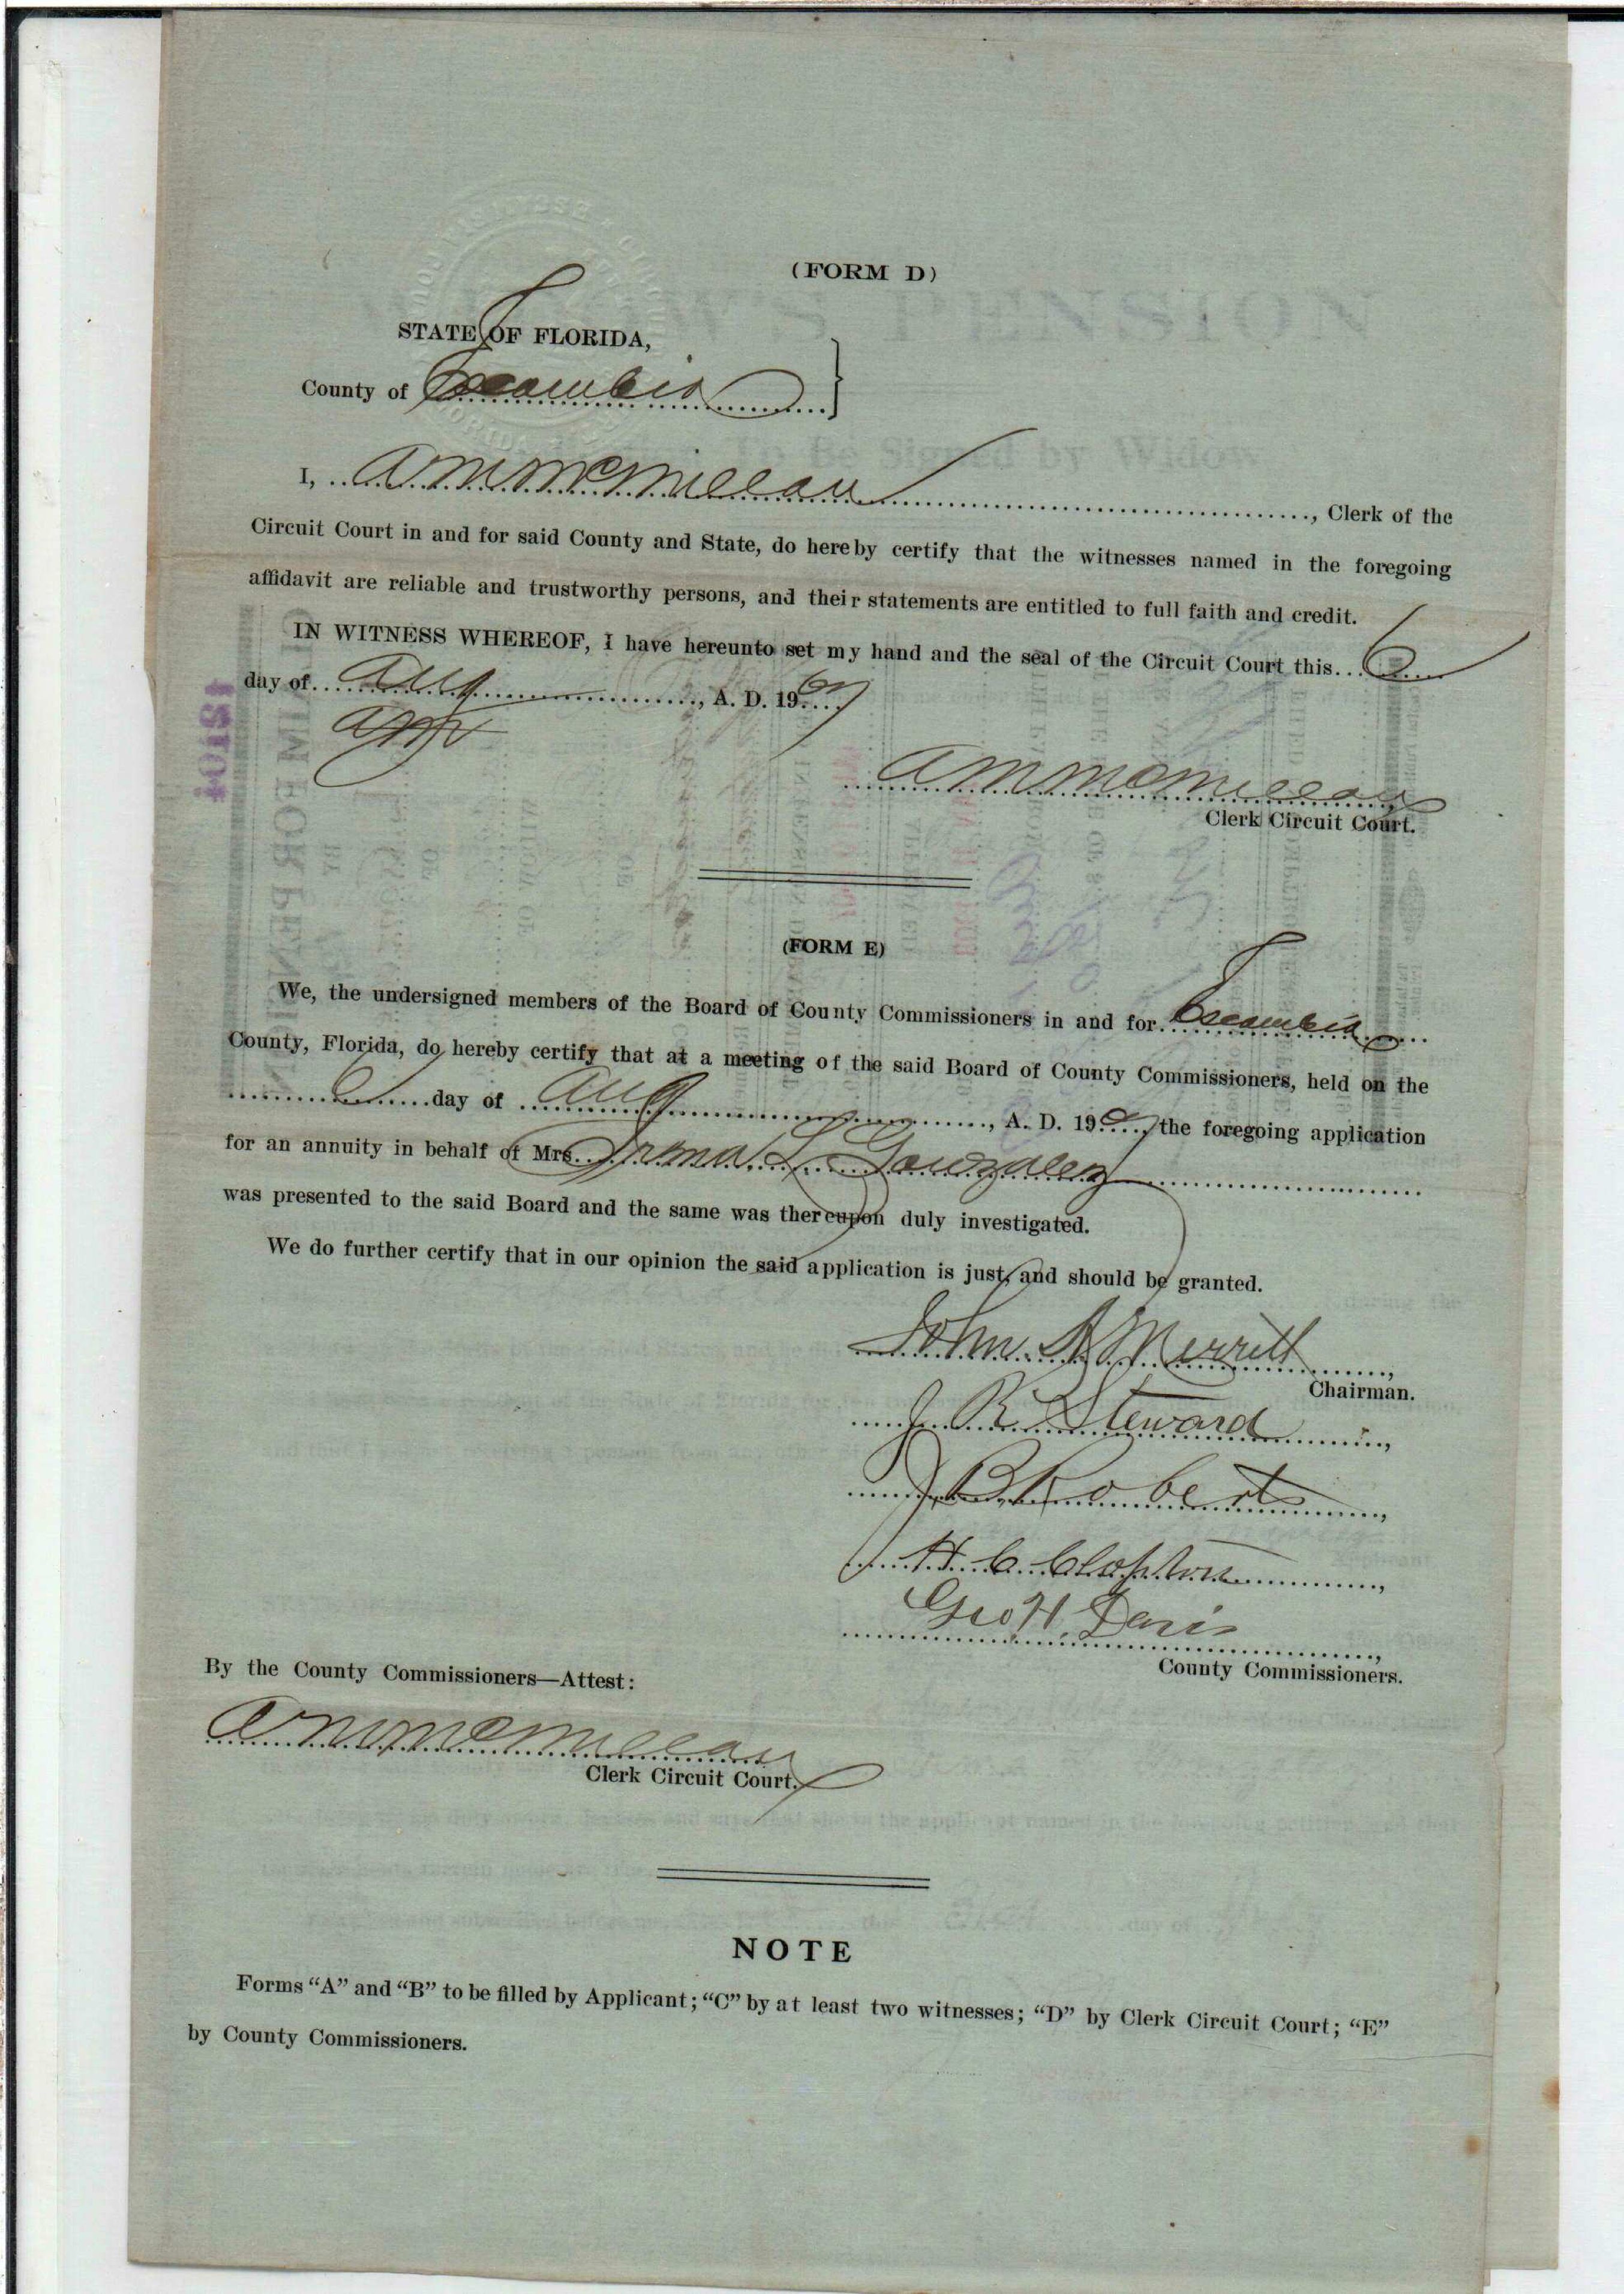 (FORM D)
STATE OF FLORIDA,
County of Escambia
I, A M McMillan, Clerk of the
Circuit Court in and for said County and State, do hereby certify that the witnesses named in the foregoing
affidavit are reliable and trustworthy persons, and their statements are entitled to full faith and credit.
IN WITNESS WHEREOF, I have hereunto set my hand and the seal of the Circuit Court this 6
day of Aug, A. D. 1907
A M McMillan
Clerk Circuit Court.
(FORM E)
We, the undersigned members of the Board of County Commissioners in and for Escambia
County, Florida, do hereby certify that at a meeting of the said Board of County Commissioners, held on the
6 day of Aug, A. D. 1907, the foregoing application
for an annuity in behalf of Mrs. Irena L Gonzalez
was presented to the said Board and the same was thereupon duly investigated.
We do further certify that in our opinion the said application is just, and should be granted.
John A Merritt,
Chairman.
J. R. Steward,
J. B Roberts,
H. C. Clopton,
Geo H. Davis,
County Commissioners.
By the County Commissioners—Attest:
A M McMillan
Clerk Circuit Court.
NOTE
Forms "A" and "B" to be filled by Applicant; "C" by at least two witnesses; "D" by Clerk Circuit Court; "E"
by County Commissioners.